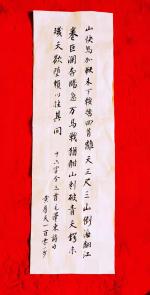 山快馬加鞭未下鞍驚回首離天三尺三山倒海翻江
卷巨瀾奔騰急万馬戰猶酣山刺破青天鍔未
殘天欲墮賴以柱其間
十六字令三首毛澤東詩詞
一百